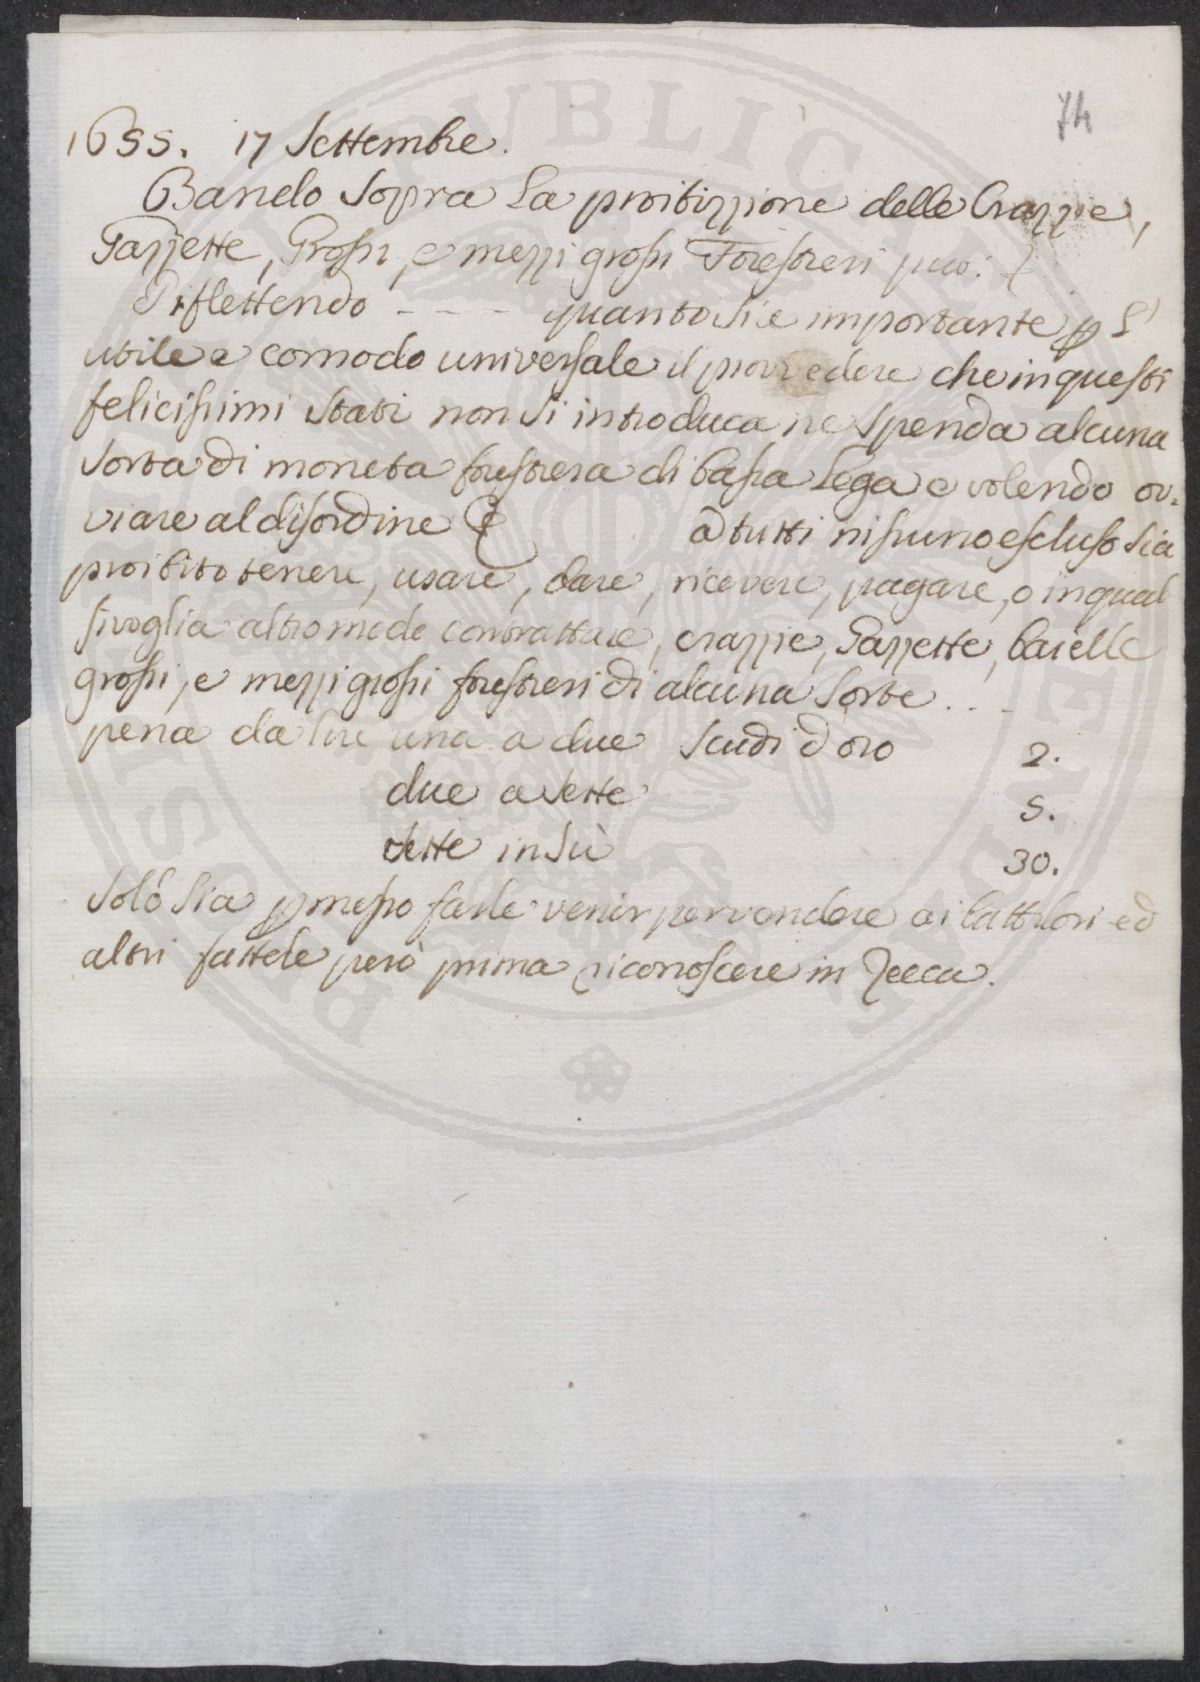 74
1655. 17 Settembre.
Bando Sopra La proibizzione delle Crazzie,
Gazzette, Grossi, e mezzi grossi Forestieri
Riflettendo - - - - quanto sie importante p l'
utile e comodo universale il provvedere che in questi
felicissimi stati non si introduca ne spenda alcuna
sorta di moneta forestiera di bassa Lega e volendo ov=
viare al disordine & à tutti nissuno escluso sia
proibito tenere, usare, dare, ricevere, pagare, o in qual
sivoglia altro mode contrattare, crazzie, Gazzette, baielle
grossi, e mezzi grossi forestieri di alcuna sorte . . -
pena da lire una a due Scudi d oro 2.
due a sette 5.
sette in sù 30.
Solo sia pmesso farle venir per vendere ai battilori ed
altri fattele però prima riconoscere in Zecca.